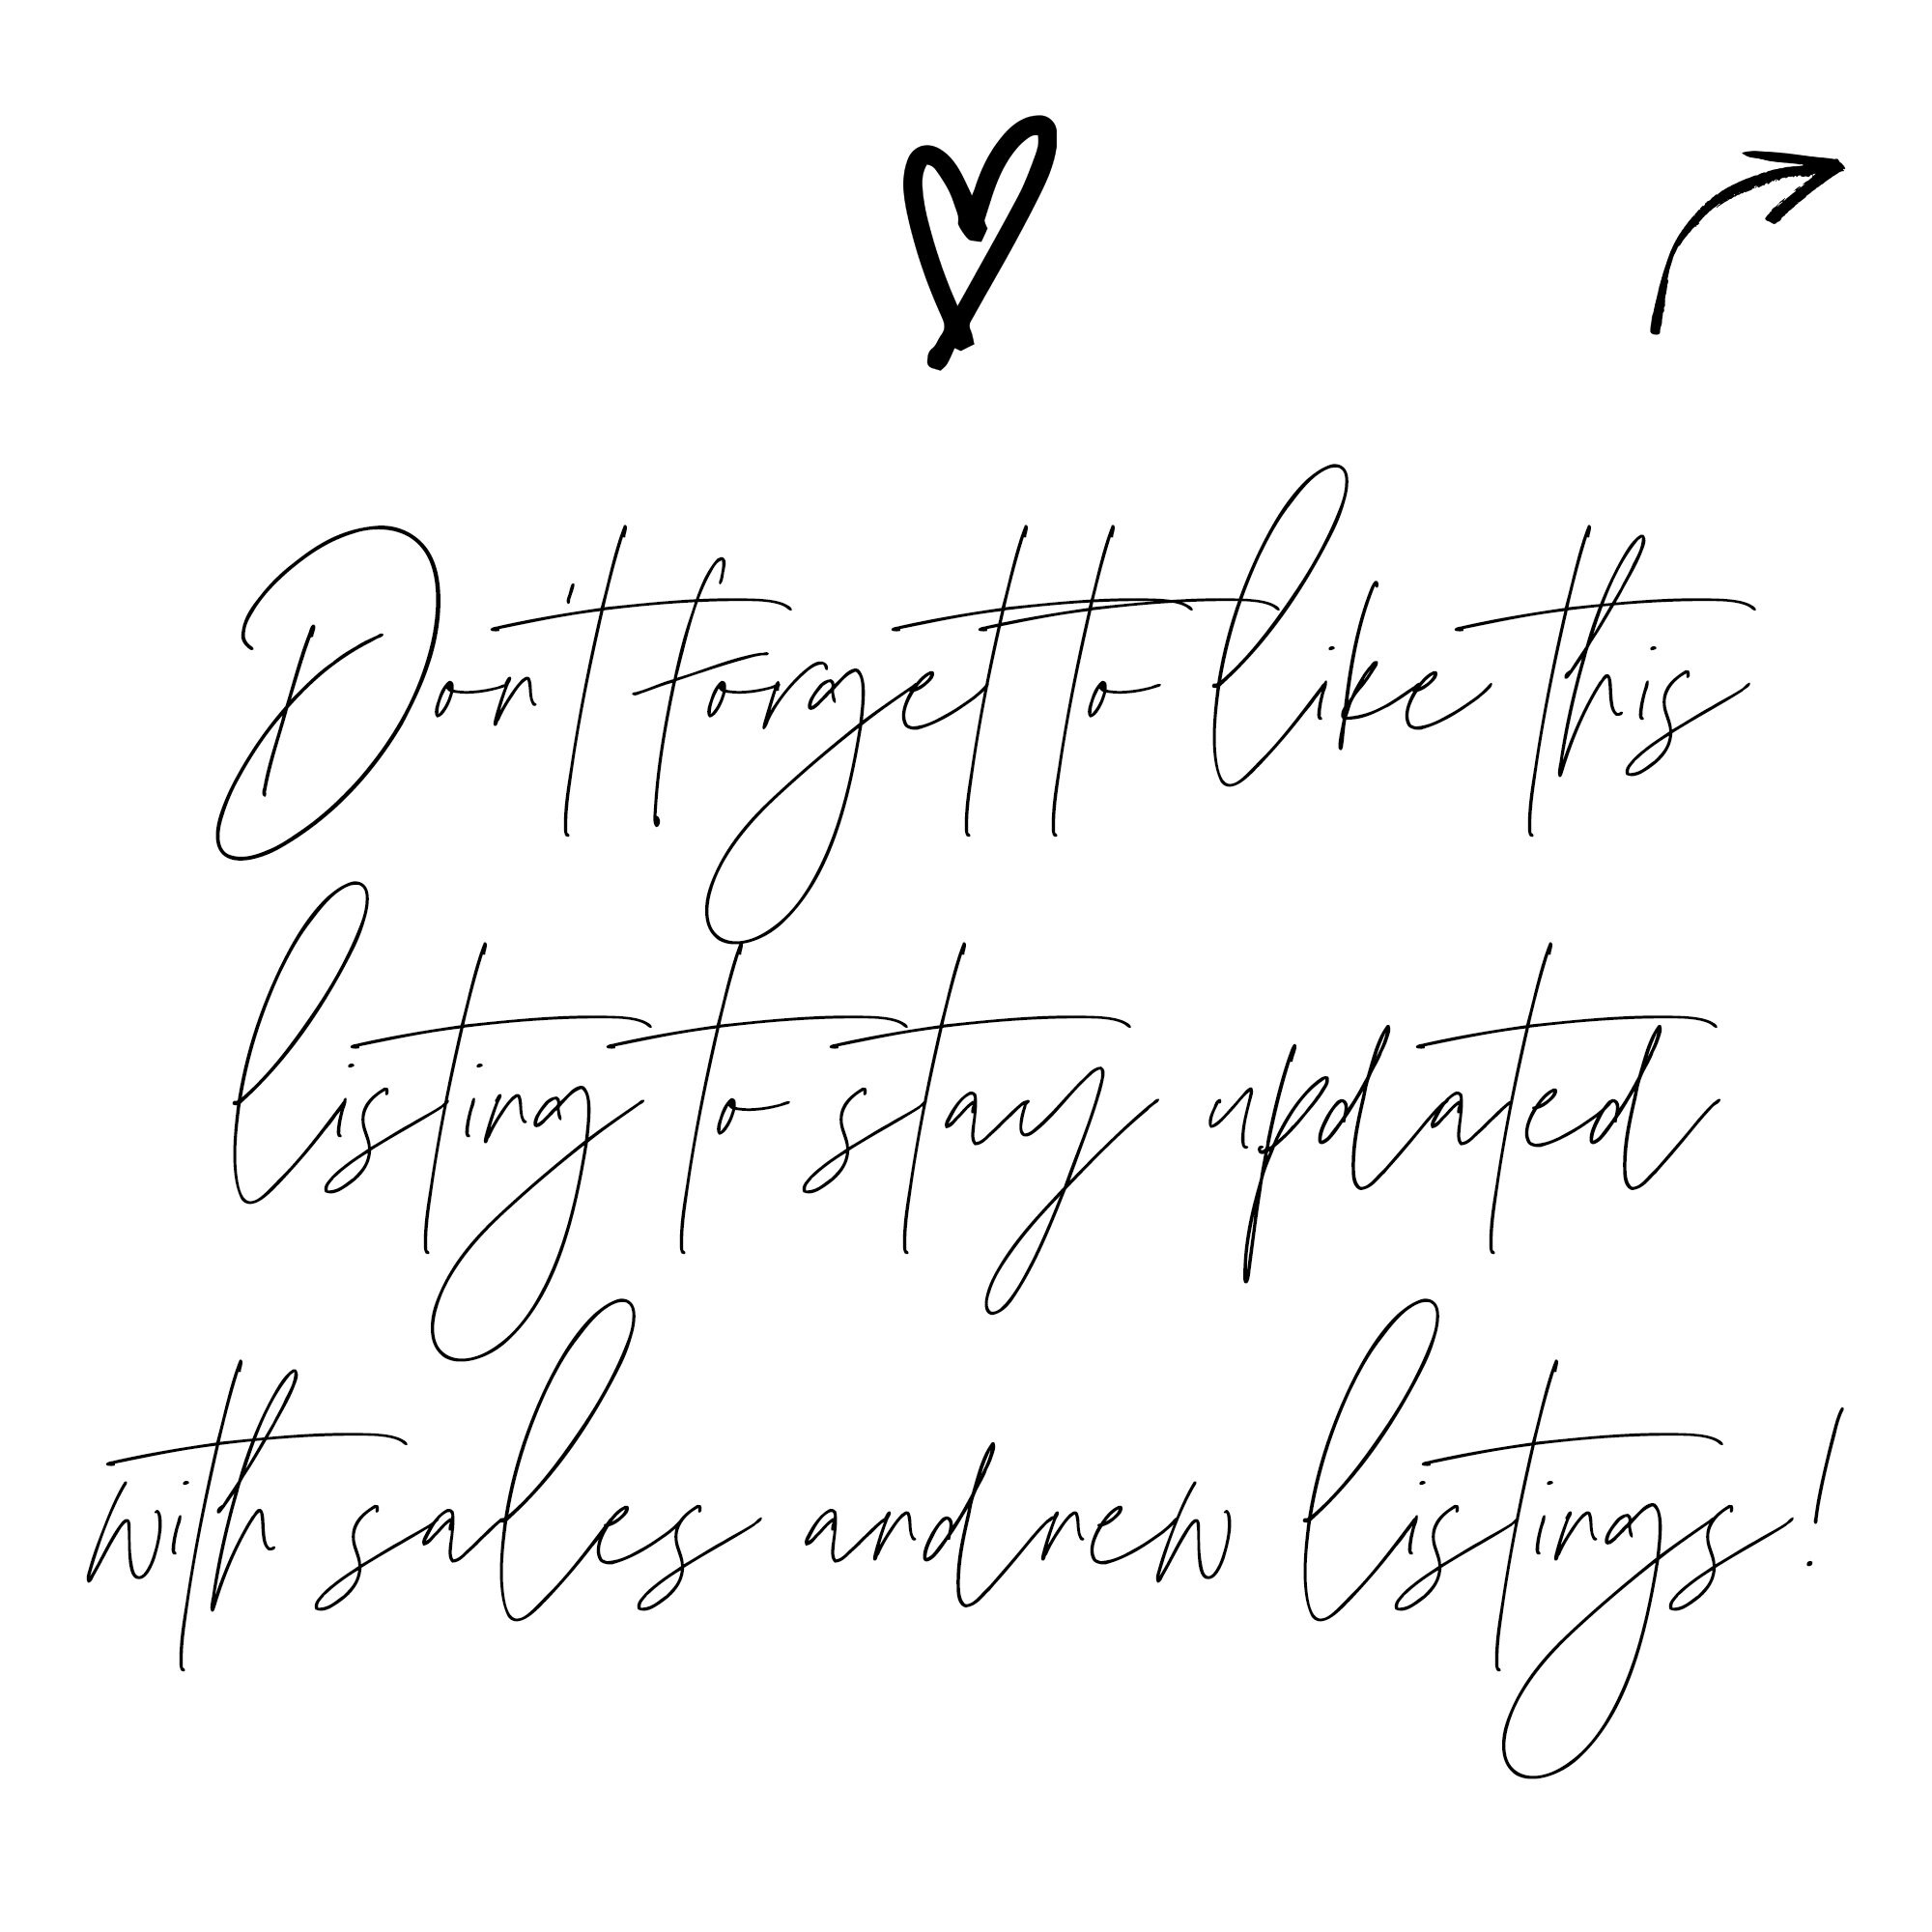 Don't forget to like this
listing to stay updated
with sales and new listings!